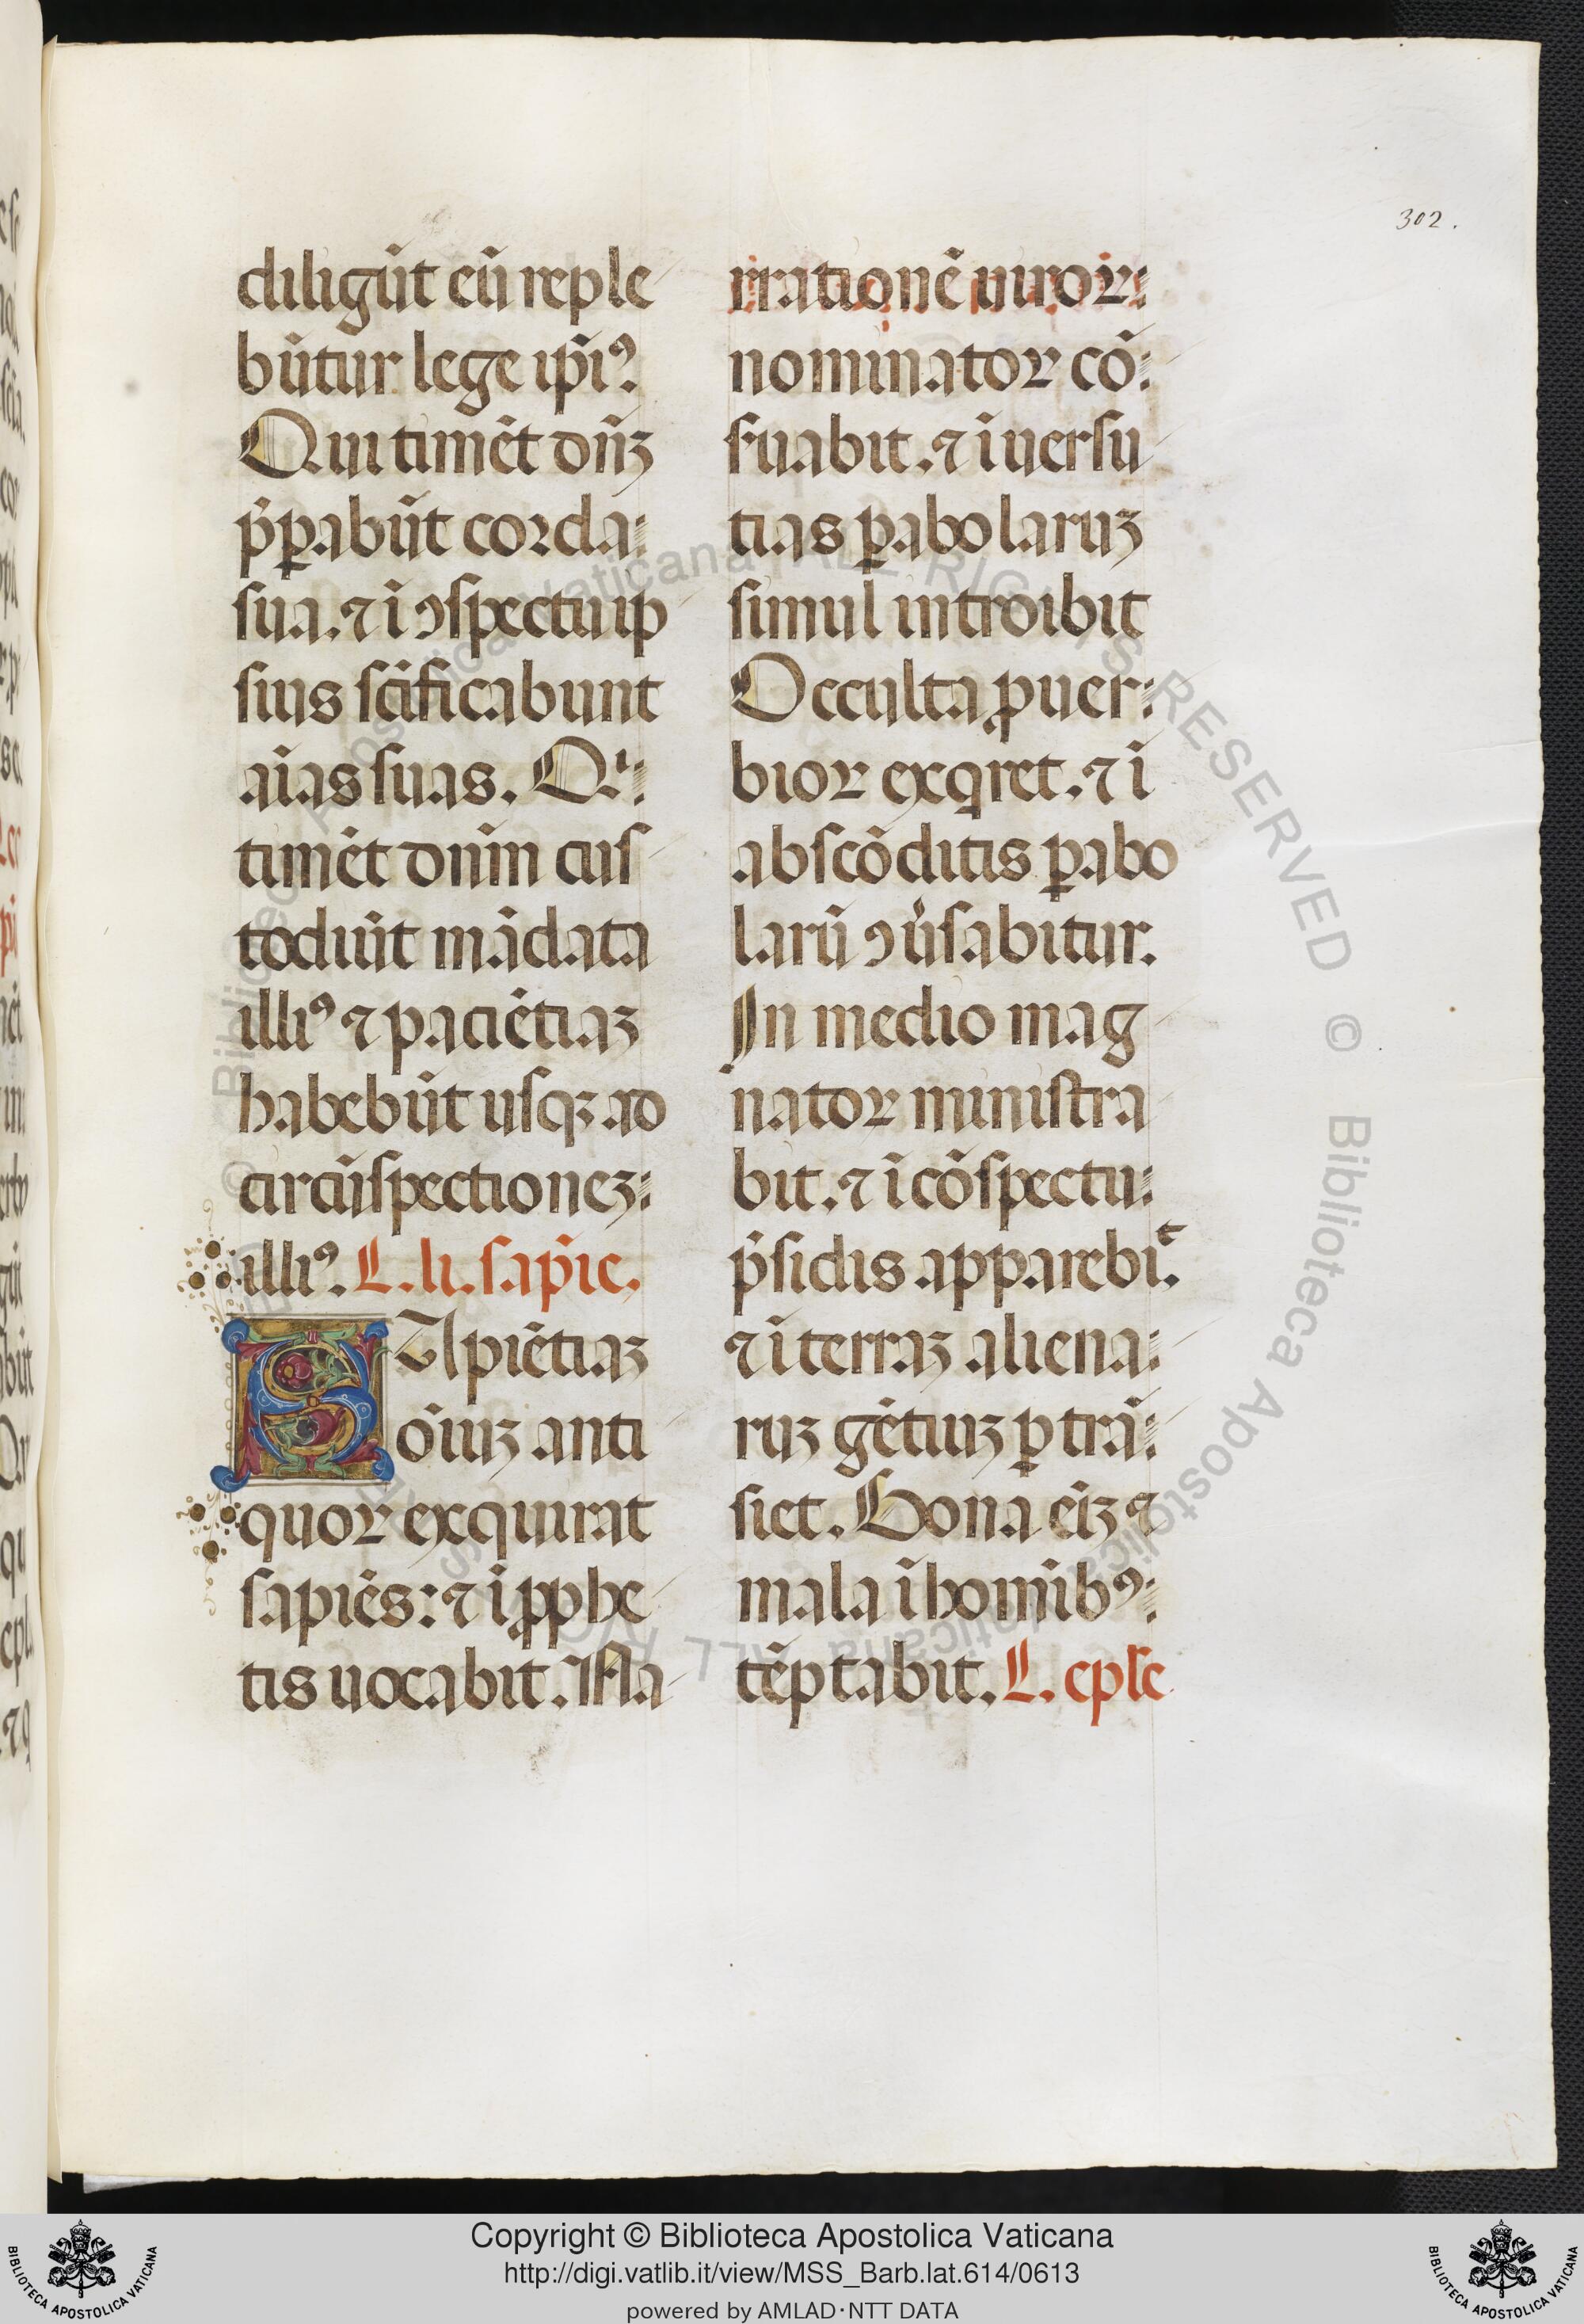 302.
diligūt eū reple
būtur lege ip̄i⁹.
Qui timēt dn̄ꝫ
p̄ꝑabūt corda
sua. ⁊ ī ꝯspectu ip
sius sc̄ificabunt
aīas suas. Qⁱ
timēt dnīn cus
toduīt mādata
illi⁹ ⁊ paciētiaꝫ
habebūt usqꝫ ad
circūspectioneꝫ
illi⁹. L. li. sap̄ie.
SApiētiaꝫ
oīuꝫ anti
quoꝝ exquirat
sapiēs: ⁊ ī ꝓphe
tis uocabit. Na
rrationē uiroꝝ
nominatoꝝ cō
ẜuabit. ⁊ ī uersu
tias ꝑabolaruꝫ
simul introibit
Occulta ꝓuer
bioꝝ exqret. ⁊ ī
abscōditis ꝑabo
larū ꝯūsabitur.
In medio mag
natoꝝ ministra
bit. ⁊ ī cōspectu
p̄sidis apparebiᵗ.
⁊ ī terraꝫ aliena
ruꝫ gētiuꝫ ꝑtrā
siet. Bona eīꝫ ⁊
mala ī homīb⁹
tēptabit. L. epl̄e
© Biblioteca Apostolica Vaticana ALL RIGHTS RESERVED © Biblioteca Apostolica Vaticana ALL RIGHTS RESERVED
BIBLIOTECA APOSTOLICA VATICANA
Copyright © Biblioteca Apostolica Vaticana
http://digi.vatlib.it/view/MSS_Barb.lat.614/0613
powered by AMLAD·NTT DATA
BIBLIOTECA APOSTOLICA VATICANA